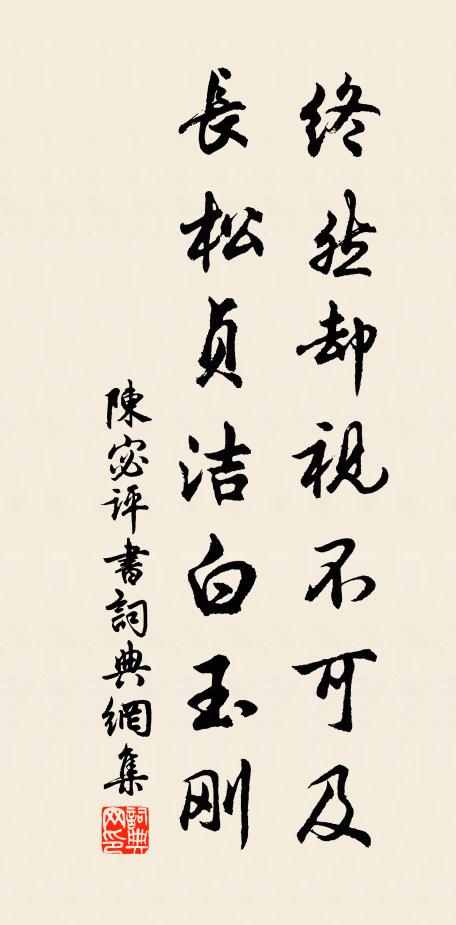 终然却视不可及
長松贞洁白玉刚
陳宓评書詞典網集
詞典网印